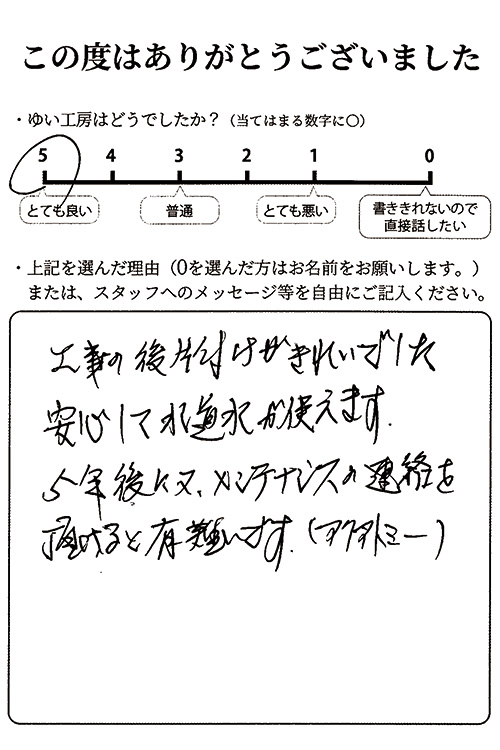 この度はありがとうございました
・ゆい工房はどうでしたか？（当てはまる数字に〇）
5 4 3 2 1 0
とても良い 普通 とても悪い 書ききれないので直接話したい
・上記を選んだ理由（0を選んだ方はお名前をお願いします。）
または、スタッフへのメッセージ等を自由にご記入ください。
工事の後片付けがきれいでした
安心して水道水が使えます.
5年後に又、メンテナンスの連絡を
頂けると有難いです.（アクアトミー）